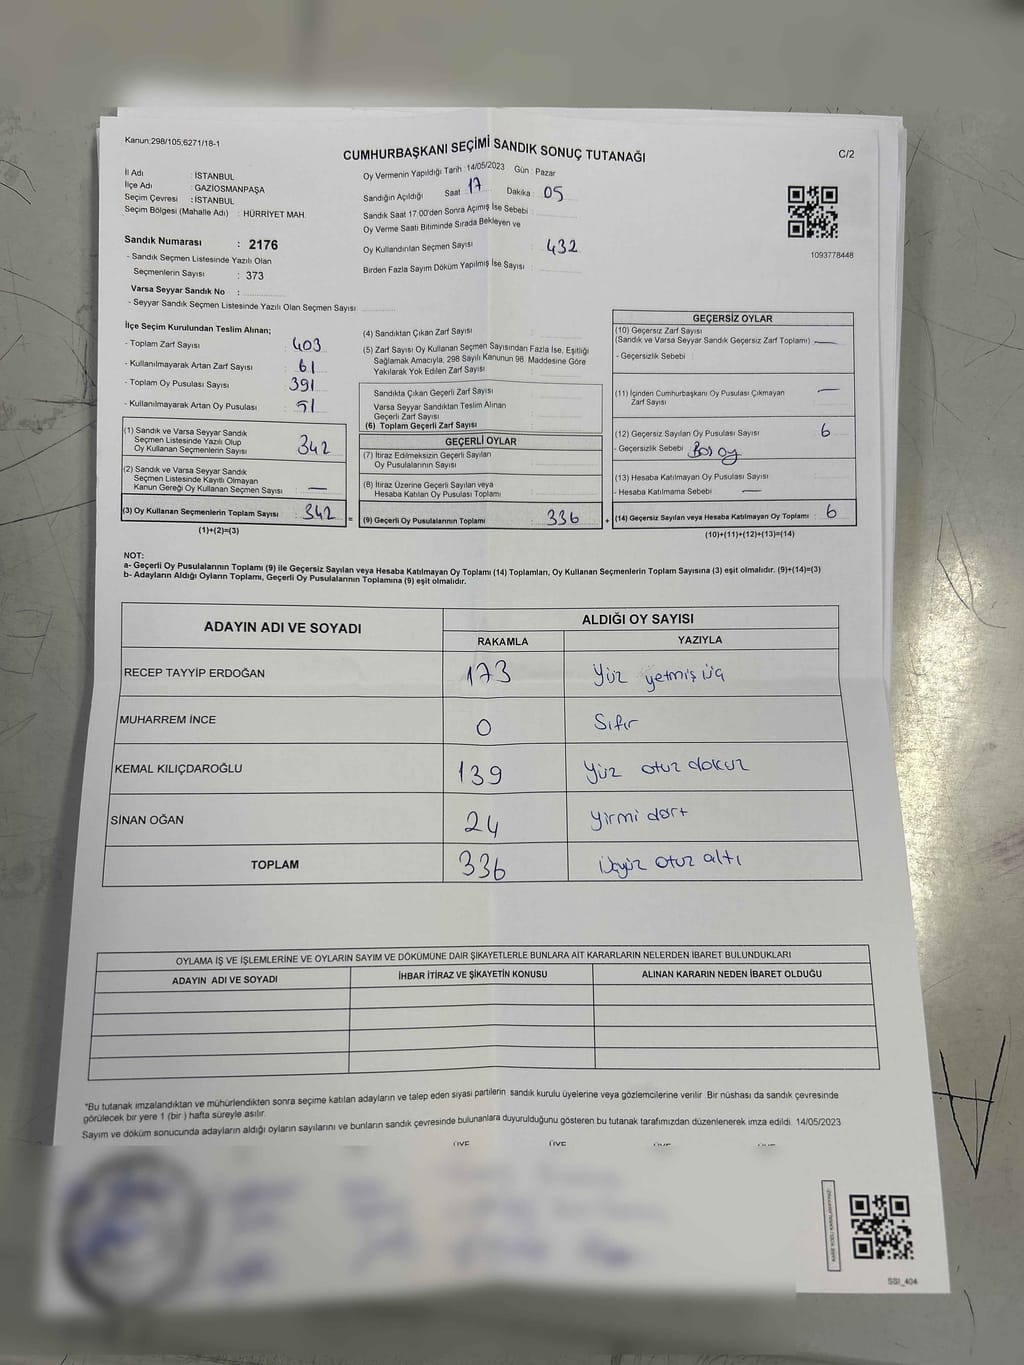 Kanun:298/105,6271/18-1
CUMHURBAŞKANI SEÇİMİ SANDIK SONUÇ TUTANAĞI
C/2
İl Adı : İSTANBUL
İlçe Adı : GAZİOSMANPAŞA
Seçim Çevresi : İSTANBUL
Seçim Bölgesi (Mahalle Adı) : HÜRRİYET MAH.
Oy Vermenin Yapıldığı Tarih : 14/05/2023 Gün : Pazar
Sandığın Açıldığı Saat : 17 Dakika : 05
Sandık Saat 17.00'den Sonra Açımış İse Sebebi :
Oy Verme Saati Bitiminde Sırada Bekleyen ve
Oy Kullandırılan Seçmen Sayısı : 432
Birden Fazla Sayım Döküm Yapılmış İse Sayısı :
1093778448
Sandık Numarası : 2176
- Sandık Seçmen Listesinde Yazılı Olan
Seçmenlerin Sayısı : 373
Varsa Seyyar Sandık No :
- Seyyar Sandık Seçmen Listesinde Yazılı Olan Seçmen Sayısı :
İlçe Seçim Kurulundan Teslim Alınan;
- Toplam Zarf Sayısı : 403
- Kullanılmayarak Artan Zarf Sayısı : 61
- Toplam Oy Pusulası Sayısı : 391
- Kullanılmayarak Artan Oy Pusulası : 51
(1) Sandık ve Varsa Seyyar Sandık
Seçmen Listesinde Yazılı Olup
Oy Kullanan Seçmenlerin Sayısı : 342
(2) Sandık ve Varsa Seyyar Sandık
Seçmen Listesinde Kayıtlı Olmayan
Kanun Gereği Oy Kullanan Seçmen Sayısı : —
(3) Oy Kullanan Seçmenlerin Toplam Sayısı : 342 =
(1)+(2)=(3)
(4) Sandıktan Çıkan Zarf Sayısı :
(5) Zarf Sayısı Oy Kullanan Seçmen Sayısından Fazla İse, Eşitliği
Sağlamak Amacıyla, 298 Sayılı Kanunun 98. Maddesine Göre
Yakılarak Yok Edilen Zarf Sayısı :
Sandıkta Çıkan Geçerli Zarf Sayısı :
Varsa Seyyar Sandıktan Teslim Alınan
Geçerli Zarf Sayısı :
(6) Toplam Geçerli Zarf Sayısı :
GEÇERLİ OYLAR
(7) İtiraz Edilmeksizin Geçerli Sayılan
Oy Pusulalarının Sayısı :
(8) İtiraz Üzerine Geçerli Sayılan veya
Hesaba Katılan Oy Pusulası Toplamı :
(9) Geçerli Oy Pusulalarının Toplamı : 336 +
GEÇERSİZ OYLAR
(10) Geçersiz Zarf Sayısı
(Sandık ve Varsa Seyyar Sandık Geçersiz Zarf Toplamı) : —
- Geçersizlik Sebebi :
(11) İçinden Cumhurbaşkanı Oy Pusulası Çıkmayan
Zarf Sayısı : —
(12) Geçersiz Sayılan Oy Pusulası Sayısı : 6
- Geçersizlik Sebebi : Boş oy
(13) Hesaba Katılmayan Oy Pusulası Sayısı :
- Hesaba Katılmama Sebebi : —
(14) Geçersiz Sayılan veya Hesaba Katılmayan Oy Toplamı : 6
(10)+(11)+(12)+(13)=(14)
NOT:
a- Geçerli Oy Pusulalarının Toplamı (9) ile Geçersiz Sayılan veya Hesaba Katılmayan Oy Toplamı (14) Toplamları, Oy Kullanan Seçmenlerin Toplam Sayısına (3) eşit olmalıdır. (9)+(14)=(3)
b- Adayların Aldığı Oyların Toplamı, Geçerli Oy Pusulalarının Toplamına (9) eşit olmalıdır.
ADAYIN ADI VE SOYADI ALDIĞI OY SAYISI
RAKAMLA YAZIYLA
RECEP TAYYİP ERDOĞAN 173 Yüz yetmiş üç
MUHARREM İNCE 0 Sıfır
KEMAL KILIÇDAROĞLU 139 Yüz otuz dokuz
SİNAN OĞAN 24 Yirmi dört
TOPLAM 336 Üçyüz otuz altı
OYLAMA İŞ VE İŞLEMLERİNE VE OYLARIN SAYIM VE DÖKÜMÜNE DAİR ŞİKAYETLERLE BUNLARA AİT KARARLARIN NELERDEN İBARET BULUNDUKLARI
ADAYIN ADI VE SOYADI İHBAR İTİRAZ VE ŞİKAYETİN KONUSU ALINAN KARARIN NEDEN İBARET OLDUĞU
*Bu tutanak imzalandıktan ve mühürlendikten sonra seçime katılan adayların ve talep eden siyasi partilerin sandık kurulu üyelerine veya gözlemcilerine verilir. Bir nüshası da sandık çevresinde
görülecek bir yere 1 (bir) hafta süreyle asılır.
Sayım ve döküm sonucunda adayların aldığı oyların sayılarını ve bunların sandık çevresinde bulunanlara duyurulduğunu gösteren bu tutanak tarafımızdan düzenlenerek imza edildi. 14/05/2023
ÜYE ÜYE
KARE KODU KARALAMAYINIZ!
SSI_404